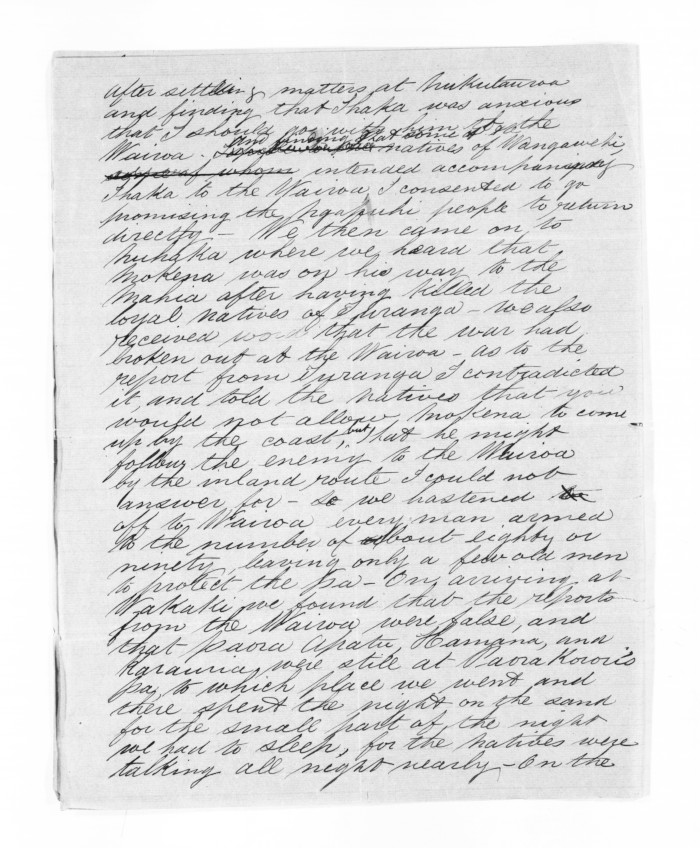 after settling matters at Nukutauroa
and finding that Ihaka was anxious
that I should go with him to the
and finding that some of the
Wairoa - natives of Wangawehi
intended accompanying
Ihaka to the Wairoa, I consented to go
promising the Ngapuhi people to return
directly - We then came on to
Nuhaka, where we heard that
Mokena was on his way to the
Mahia after having killed the
loyal natives of Turanga - we also
received word that the war had
broken out at the Wairoa - as to the
report from Turanga I contradicted
it, and told the Natives that you
would not allow Mokena to come
up by the coast, but that he might
follow the enemy to the Wairoa
by the inland route I could not
answer for - so we hastened
off to Wairoa every man armed
to the number of about eighty or
ninety, leaving only a few old men
to protect the pa - On arriving at
Wakaki we found that the reports
from the Wairoa were false, and
that Paora Apatu, Hamana, and
Karauria were still at Paora Kororis
pa, to which place we went and
there spent the night on the sand
for the small part of the night
we had to sleep, for the natives were
talking all night nearly - On the